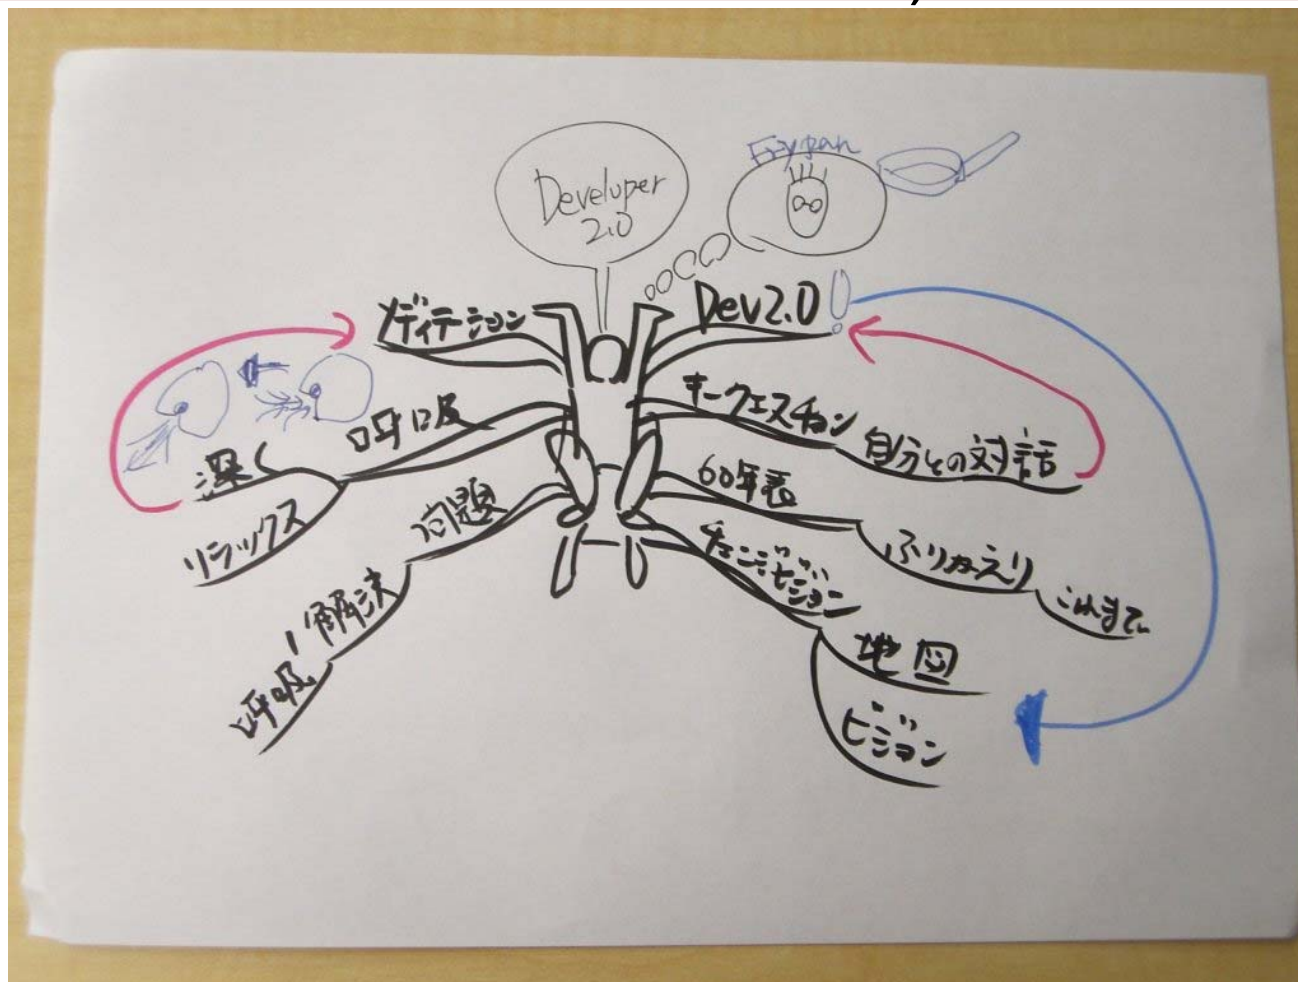 Frypan
Developer
2.0
メディテーション
Dev2.0!
呼吸
深く
リラックス
問題
解決
呼吸
キークエスチョン
自分との対話
60年表
ふりかえり
これまで
チェンジビジョン
地図
ビジョン